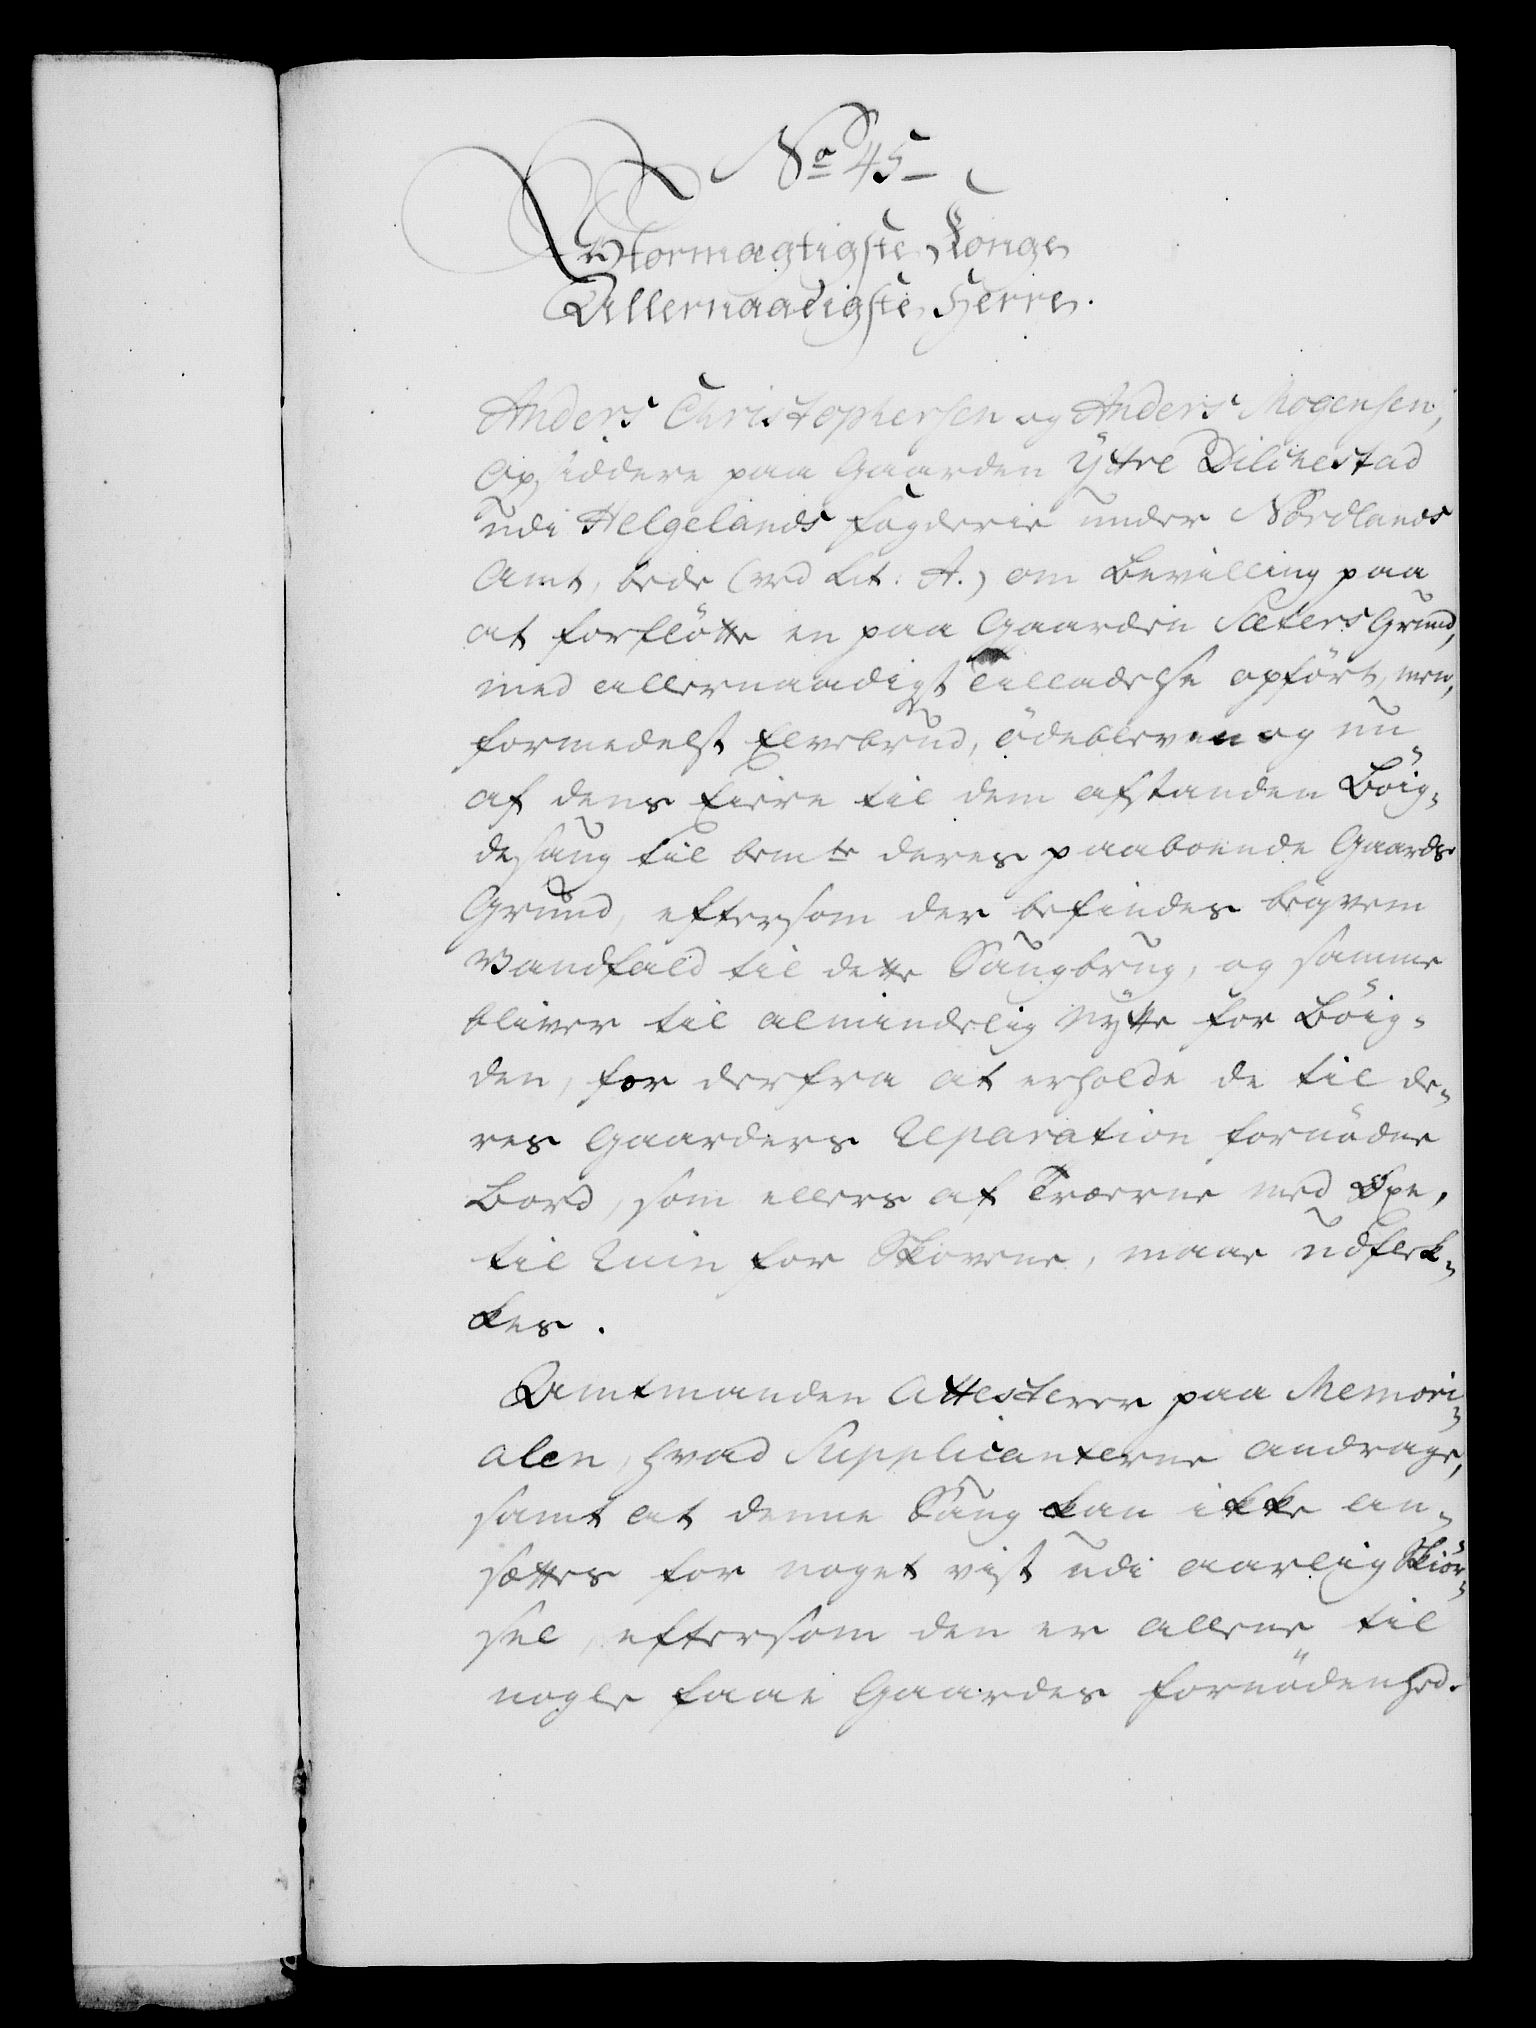 No 45
Stormægtigste Konge
Allernaadigste Herre.
Anders Christophersen og Anders Mogensen,
Opsiddere paa Gaarden Ÿttre Dilckestad
udi Helgelands Fogderie under Nordlands
Amt, bede (ved Lit: A.) om Bevilling paa
at forfløtte en paa Gaarden Sæters Grund,
med allernaadigst Tilladelse opført, men,
formedelst Elvebrud, ødebleven og nu
af dens Eiere til dem afstanden Bøig-
desaug til bemte deres paaboende Gaards
Grund, eftersom der befindes beqvem
Vandfald til dette Saugbrug, og samme
bliver til almindelig Nÿtte for Bøig-
den, for derfra at erholde de til de-
res Gaarders Reparation fornødne
Bord, som ellers af Træerne med Øxe,
til Ruin for Skovene, maae udflek-
kes.
Amtmanden Attesterer paa Memori-
alen, hvad Supplicanterne andrage,
samt at denne Saug kan ikke an-
sættes for noget vist udi aarlig Skiør-
sel, eftersom den er allene til
nogle faae Gaardes fornødenhed.